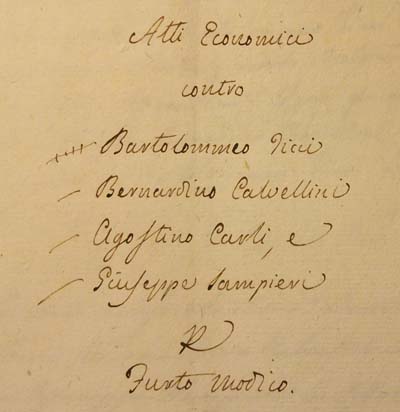 Atti Economici
contro
Bartolommeo
Bernardino Calvellini
Agostino Carli, e
Giuseppe Sampieri
Furto Modico.